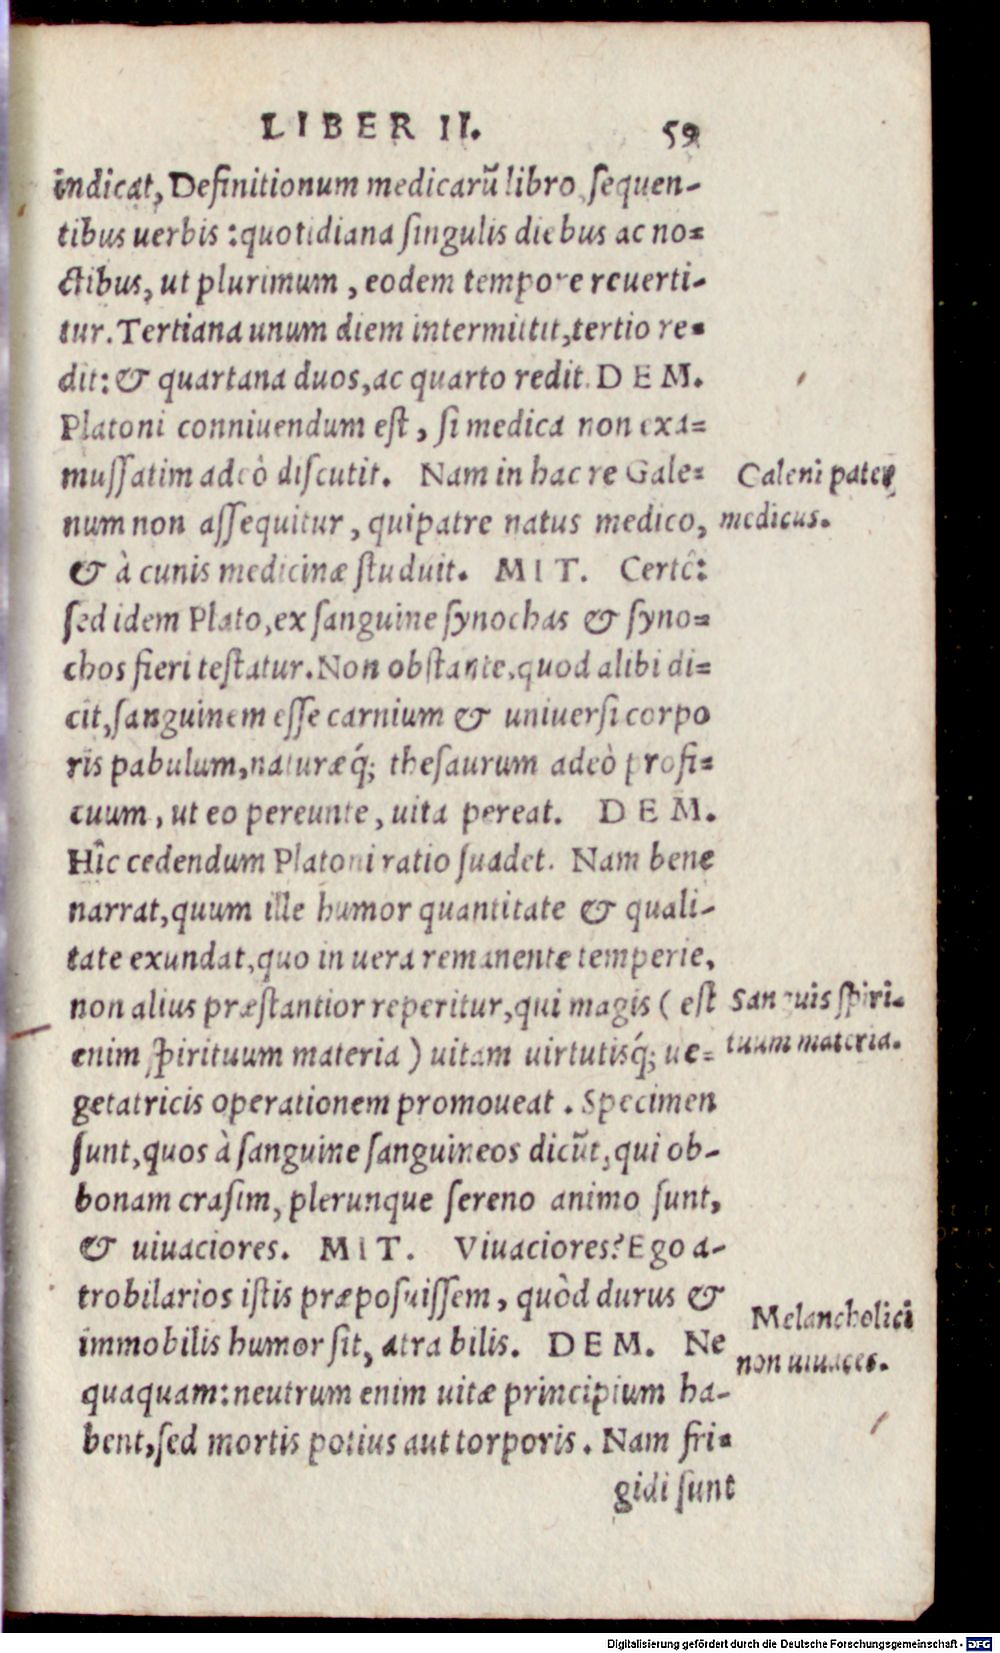 LIBER II. 59
indicat, Definitionum medicarũ libro ſequen-
tibus uerbis: quotidiana ſingulis diebus ac no=
ctibus, ut plurimum, eodem tempore reuerti-
tur. Tertiana unum diem intermittit, tertio re=
dit: & quartana duos, ac quarto redit. DEM.
Platoni conniuendum eſt, ſi medica non exa=
muſſatim adeò diſcutit. Nam in hac re Gale=
num non aſſequitur, qui patre natus medico,
Galeni pater
medicus.
& à cunis medicinæ ſtuduit. MIT. Certè:
ſed idem Plato, ex ſanguine ſynochas & ſyno=
chos fieri teſtatur. Non obſtante, quod alibi di=
cit, ſanguinem eſſe carnium & uniuerſi corpo
ris pabulum, naturæq́; theſaurum adeò profi=
cuum, ut eo pereunte, uita pereat. DEM.
Hîc cedendum Platoni ratio ſuadet. Nam bene
narrat, quum ille humor quantitate & quali-
tate exundat, quo in uera remanente temperie,
non alius præſtantior reperitur, qui magis (eſt
enim ſpirituum materia) uitam uirtutisq́; ue=
Sanguis ſpiri=
tuum materia.
getatricis operationem promoueat. Specimen
ſunt, quos à ſanguine ſanguineos dicũt, qui ob-
bonam craſim, plerunque ſereno animo ſunt,
& uiuaciores. MIT. Viuaciores? Ego a-
trobilarios iſtis præpoſuiſſem, quòd durus &
immobilis humor ſit, atra bilis. DEM. Ne
Melancholici
non uiuaces.
quaquam: neutrum enim uitæ principium ha-
bent, ſed mortis potius aut torporis. Nam fri=
gidi ſunt
Digitalisierung gefördert durch die Deutsche Forschungsgemeinschaft - DFG